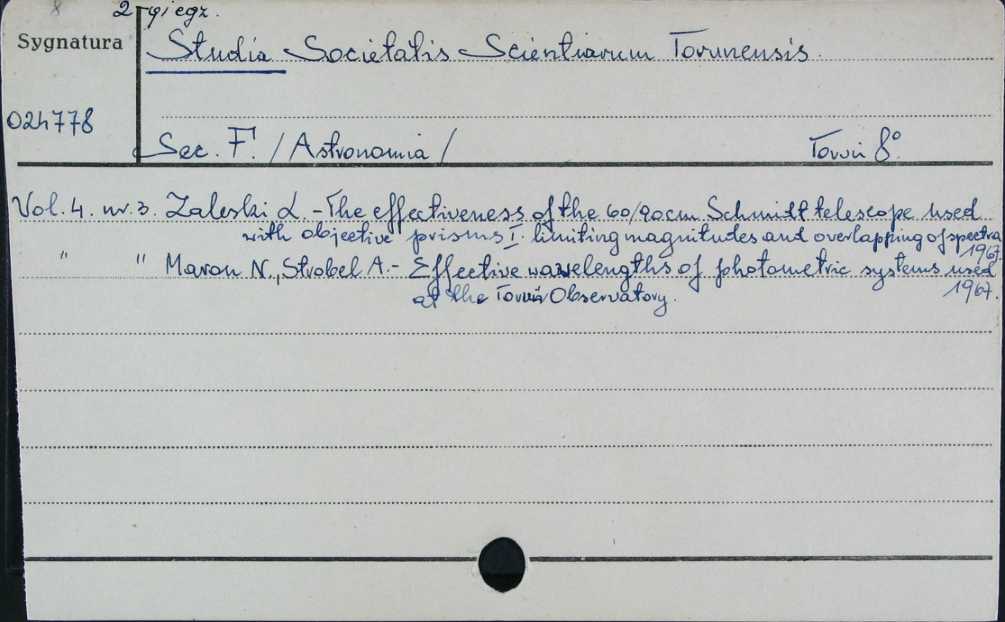 8 2-gi egz.
Sygnatura Studia Societatis Scientiarum Torunensis.
024778
Sec. F. /Astronomia/ Toruń 8°.
Vol. 4. nr. 3. Zaleski, L. - The effectiveness of the 60/90cm Schmidt telescope used
with objective prisms I. limiting magnitudes and overlapping of spectra
1967.
" " Maron N., Strobel A. - Effective wavelengths of photometric systems used
at the Toruń Observatory. 1967.